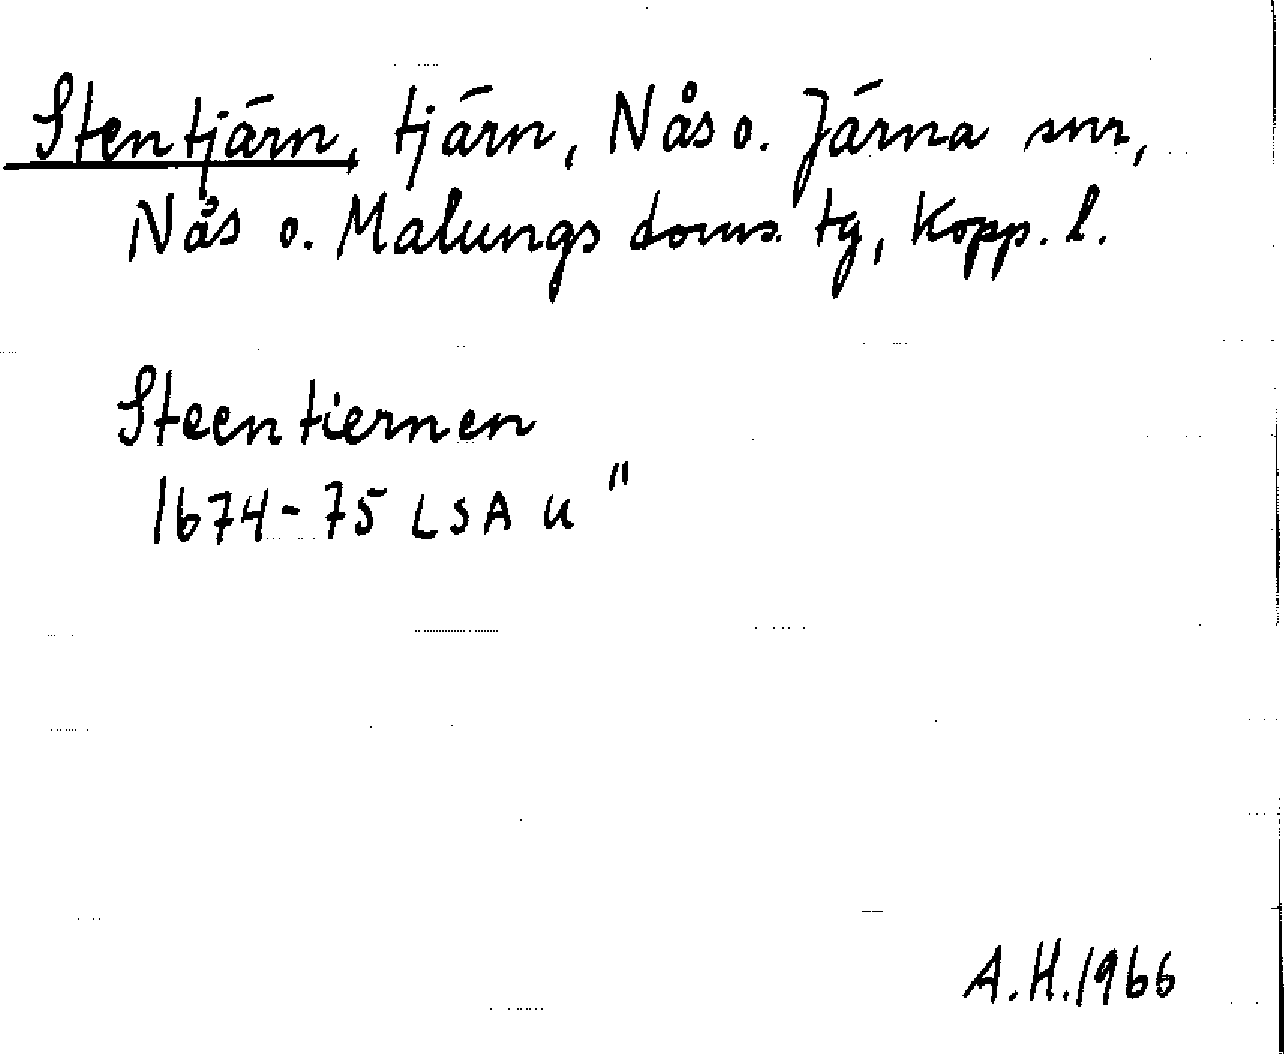 Stentjärn, tjärn, Nås o. Järna snr,
Nås o. Malungs doms. tg, Kopp. l.
Steentiernen
1674-75 LSA U "
A.H. 1966